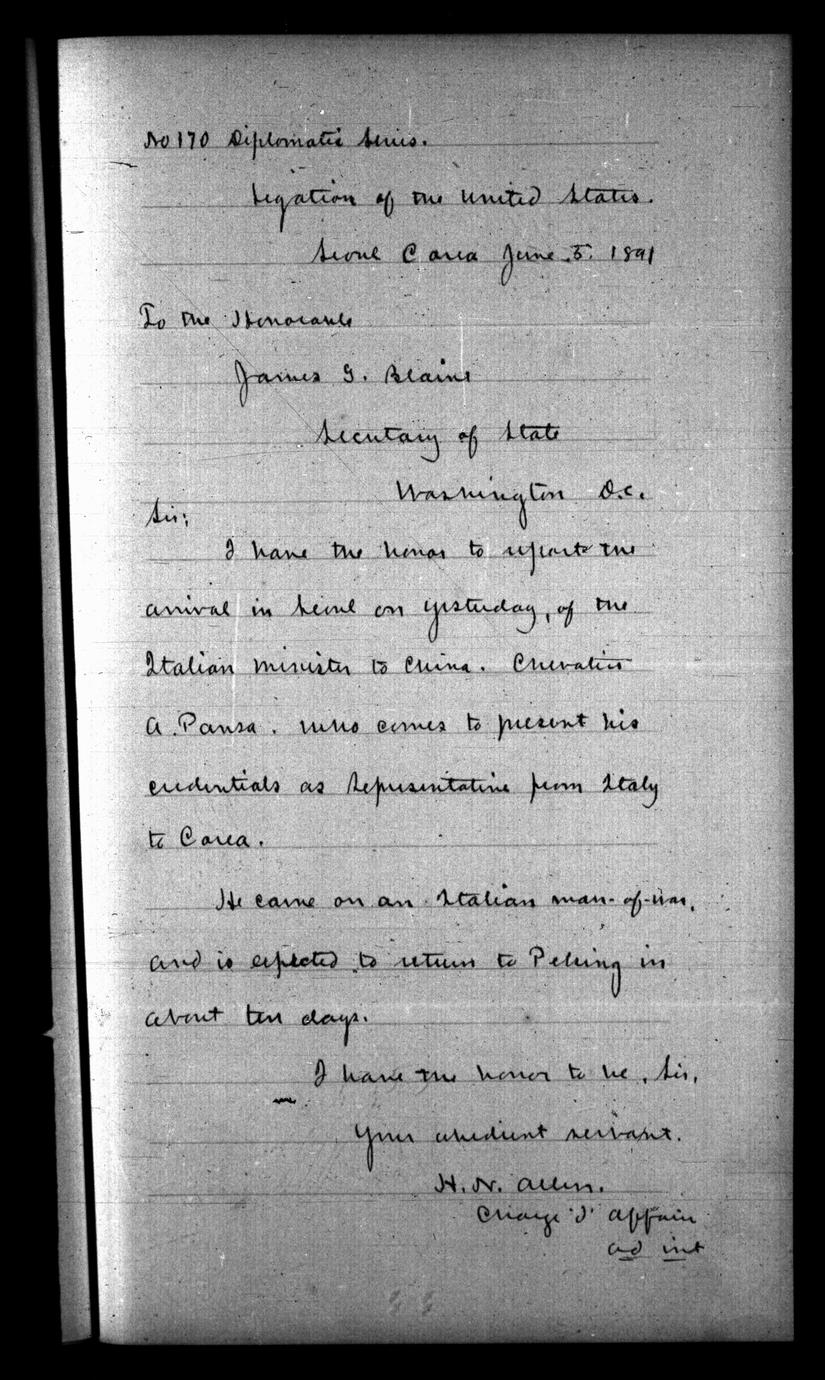 No 170 Diplomatic Series.
Legation of the United States.
Seoul Corea June 5. 1891
To the Honorable
James G. Blaine
Secretary of State
Washington D.C.
Sir;
I have the honor to report the
arrival in Seoul on yesterday, of the
Italian minister to China. Chevalier
A. Pansa. who comes to present his
credentials as Representative from Italy
to Corea.
He came on an Italian man-of-war,
and is expected to return to Peking in
about ten days.
I have the honor to be, Sir,
Your obedient servant.
H. N. Allen.
Charge d' Affair
ad int